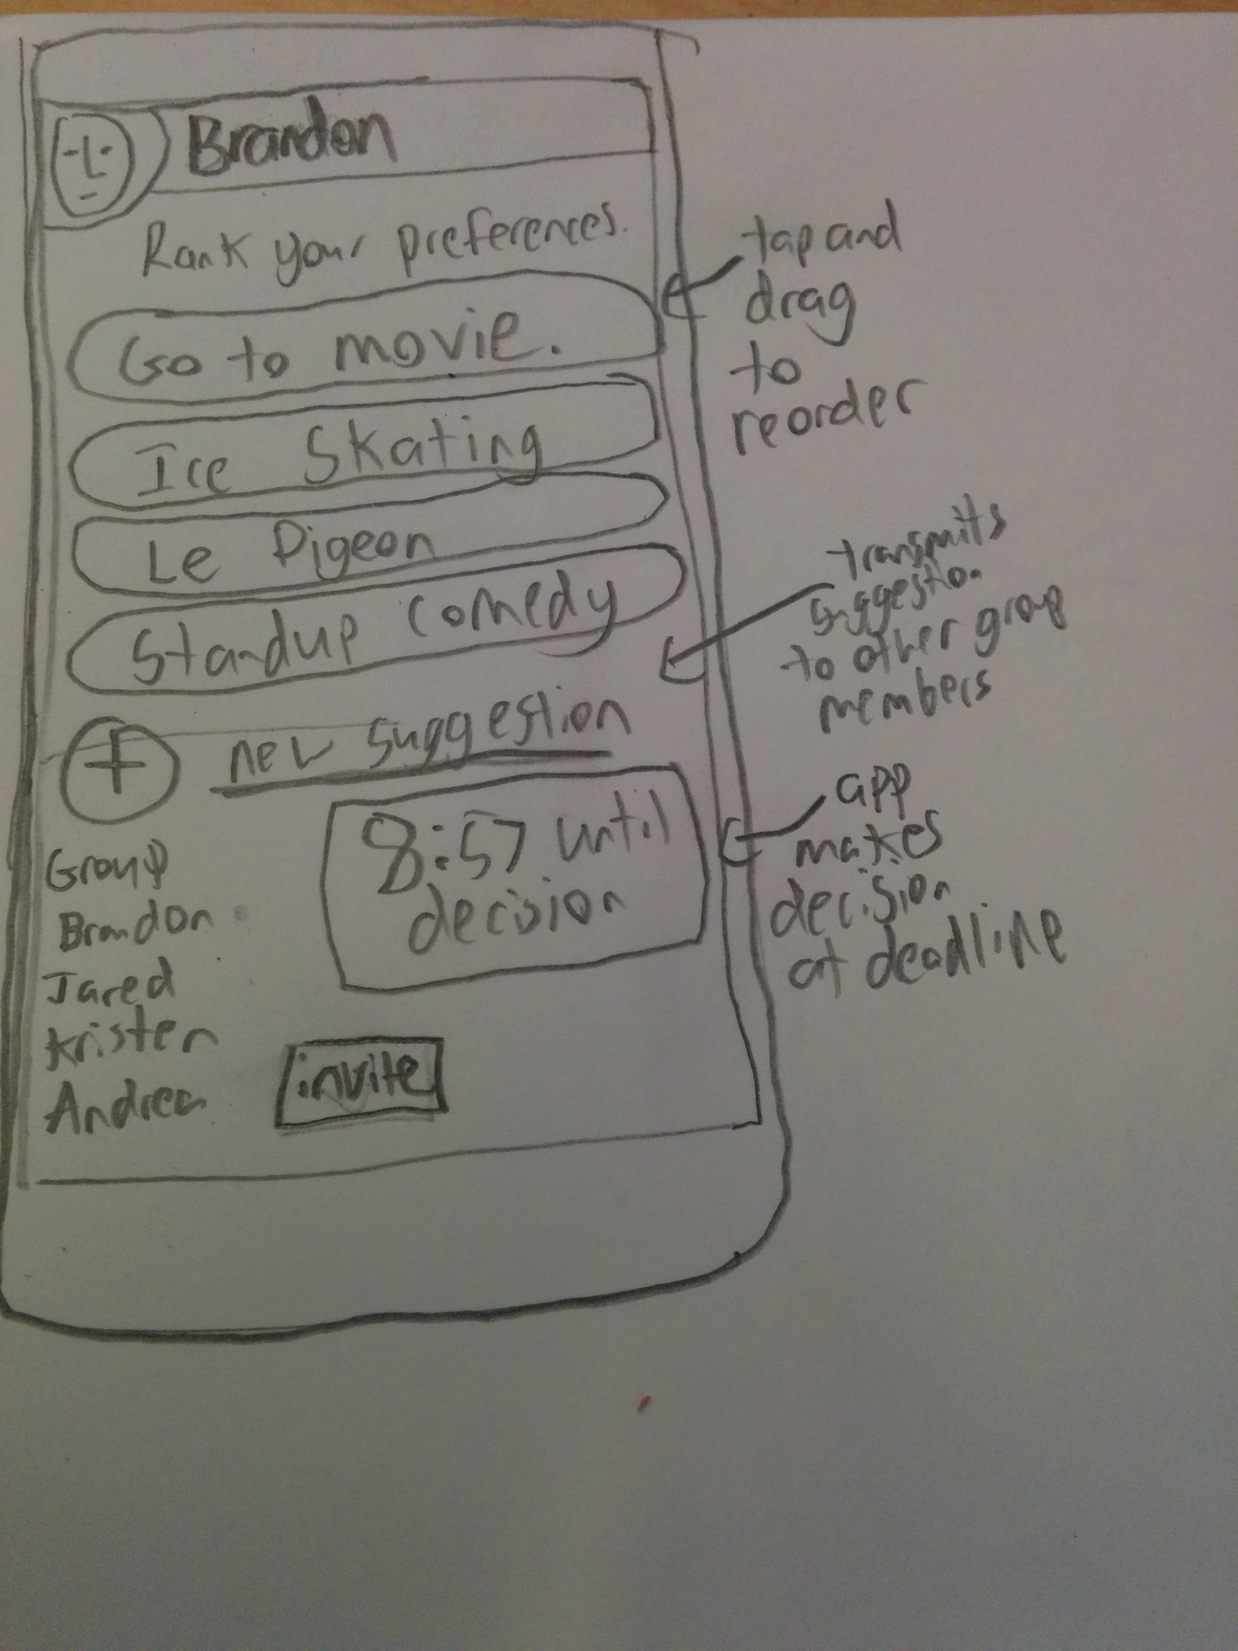 Brandon
Rank your preferences.
Go to movie.
Ice Skating
Le Pigeon
Standup comedy
+ new suggestion
8:57 until
decision
Group
Brandon
Jared
Kristen
Andrea
invite
tap and
drag
to
reorder
transmits
suggestion
to other group
members
app
makes
decision
at deadline